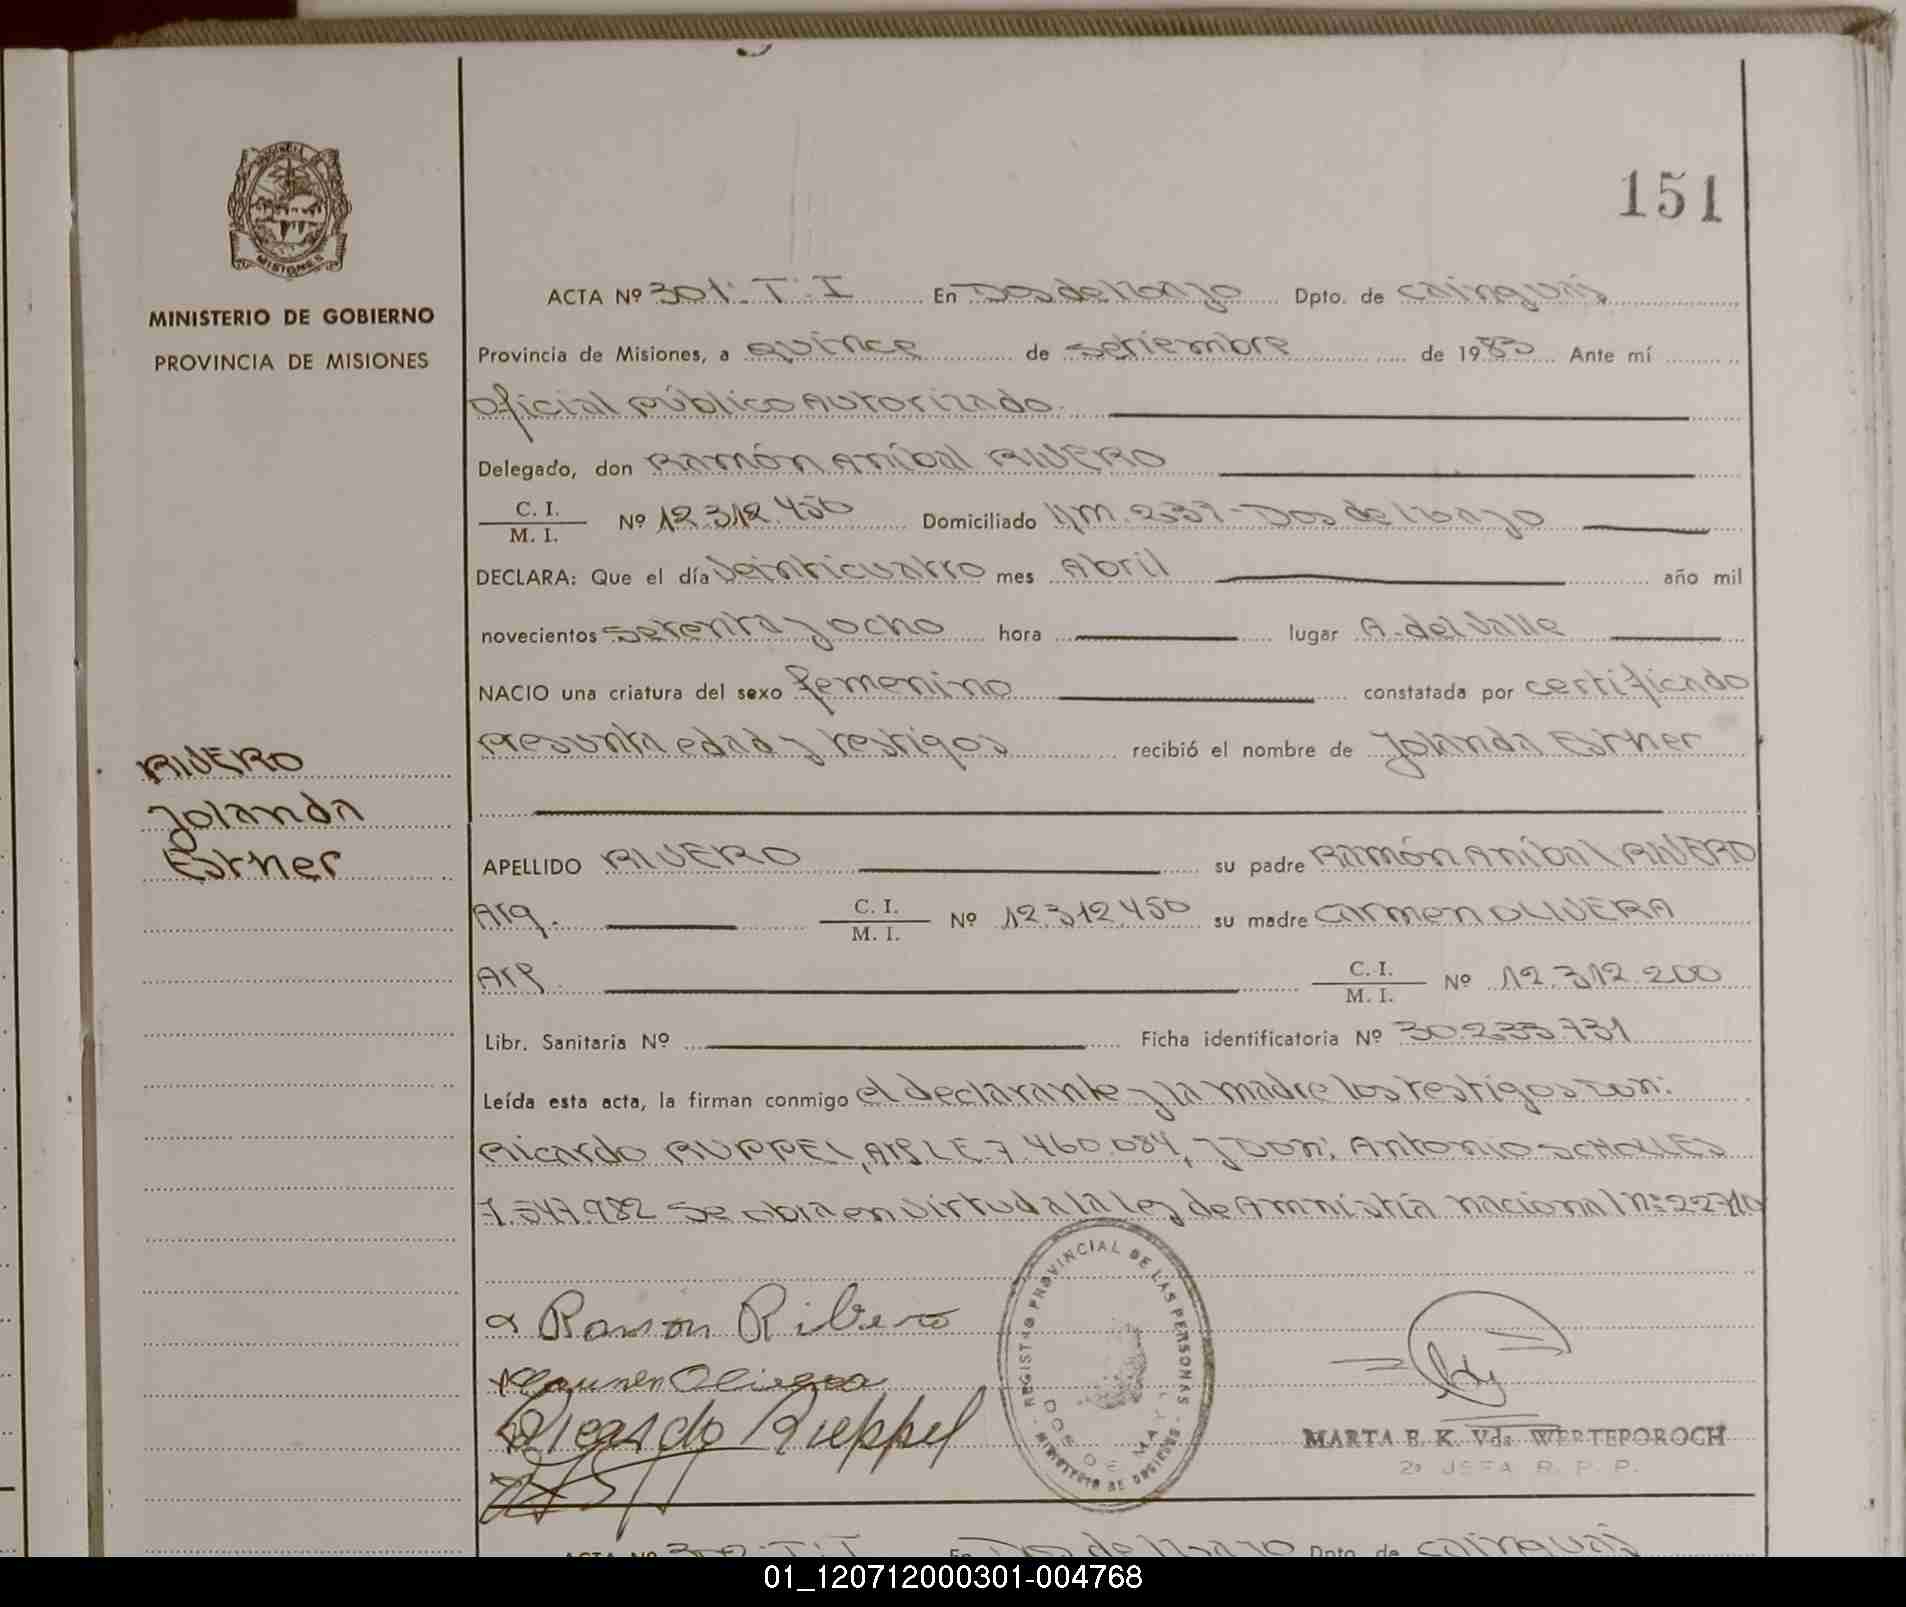 151
PROVINCIA
MISIONES
MINISTERIO DE GOBIERNO
PROVINCIA DE MISIONES
ACTA Nº 301. T. I En Dos de Mayo Dpto. de Cainguás
Provincia de Misiones, a quince de setiembre de 1983 Ante mí
Oficial Público Autorizado
Delegado, don Ramón Aníbal RIVERO
C. I.
M. I. Nº 12.312.450 Domiciliado Dos de Mayo
DECLARA: Que el día Veinticuatro mes Abril año mil
novecientos setenta y ocho hora lugar A. del Valle
NACIO una criatura del sexo femenino constatada por certificado
presunta edad y testigos recibió el nombre de Yolanda Esther
RIVERO
Yolanda
Esther
APELLIDO RIVERO su padre Ramón Aníbal RIVERO
Arg. C. I.
M. I. Nº 12.312.450 su madre Carmen OLIVERA
Arg. C. I.
M. I. Nº 12.312.200
Libr. Sanitaria Nº Ficha identificatoria Nº 30.233.731
Leída esta acta, la firman conmigo el declarante y la madre los testigos Don:
Ricardo RUPPEL, Arg. L.E. 7.460.084, y Don: Antonio
7.547.982 Se labra en virtud a la Ley de Amnistía nacional nº 22710
Ramon Ribero
Carmen Olivera
Ricardo Rieppel
REGISTRO PROVINCIAL DE LAS PERSONAS
DOS DE MAYO
MINISTERIO DE GOBIERNO
MARTA E. K. Vda. WERTEPOROCH
2a JEFA R. P. P.
ACTA Nº 302. T. I En Dos de Mayo Dpto. de Cainguás
01_120712000301-004768